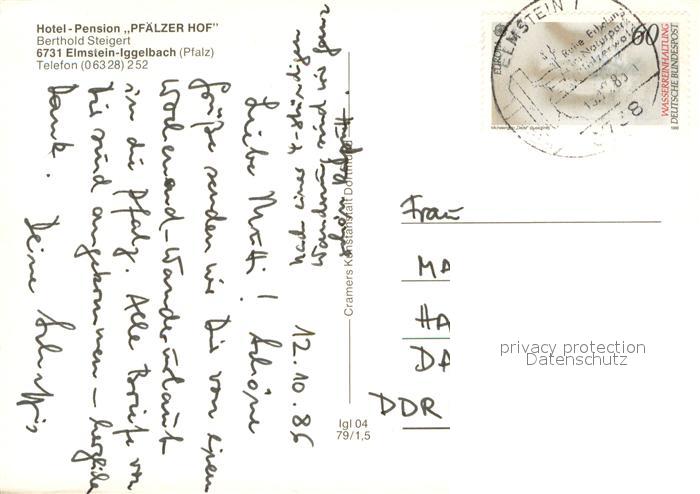 Hotel - Pension „PFÄLZER HOF"
Berthold Steigert
6731 Elmstein-Iggelbach (Pfalz)
Telefon (0 63 28) 2 52
12.10.86
Liebe Mutti! Schöne
Grüße senden wir Dir von einem
Wochenend-Wanderurlaub
in die Pfalz. Alle Briefe von
Dir sind angekommen – herzlichen
Dank. Deine
nach einer 4-stündigen
Wanderung sind wir ganz
Cramers Kunstanstalt Dortmund
Igl 04
79/1,5
EUROPA
60
WASSERREINHALTUNG
DEUTSCHE BUNDESPOST
1986
ELMSTEIN 1
6738
Frau
MA
HA
DA
DDR
privacy protection
Datenschutz